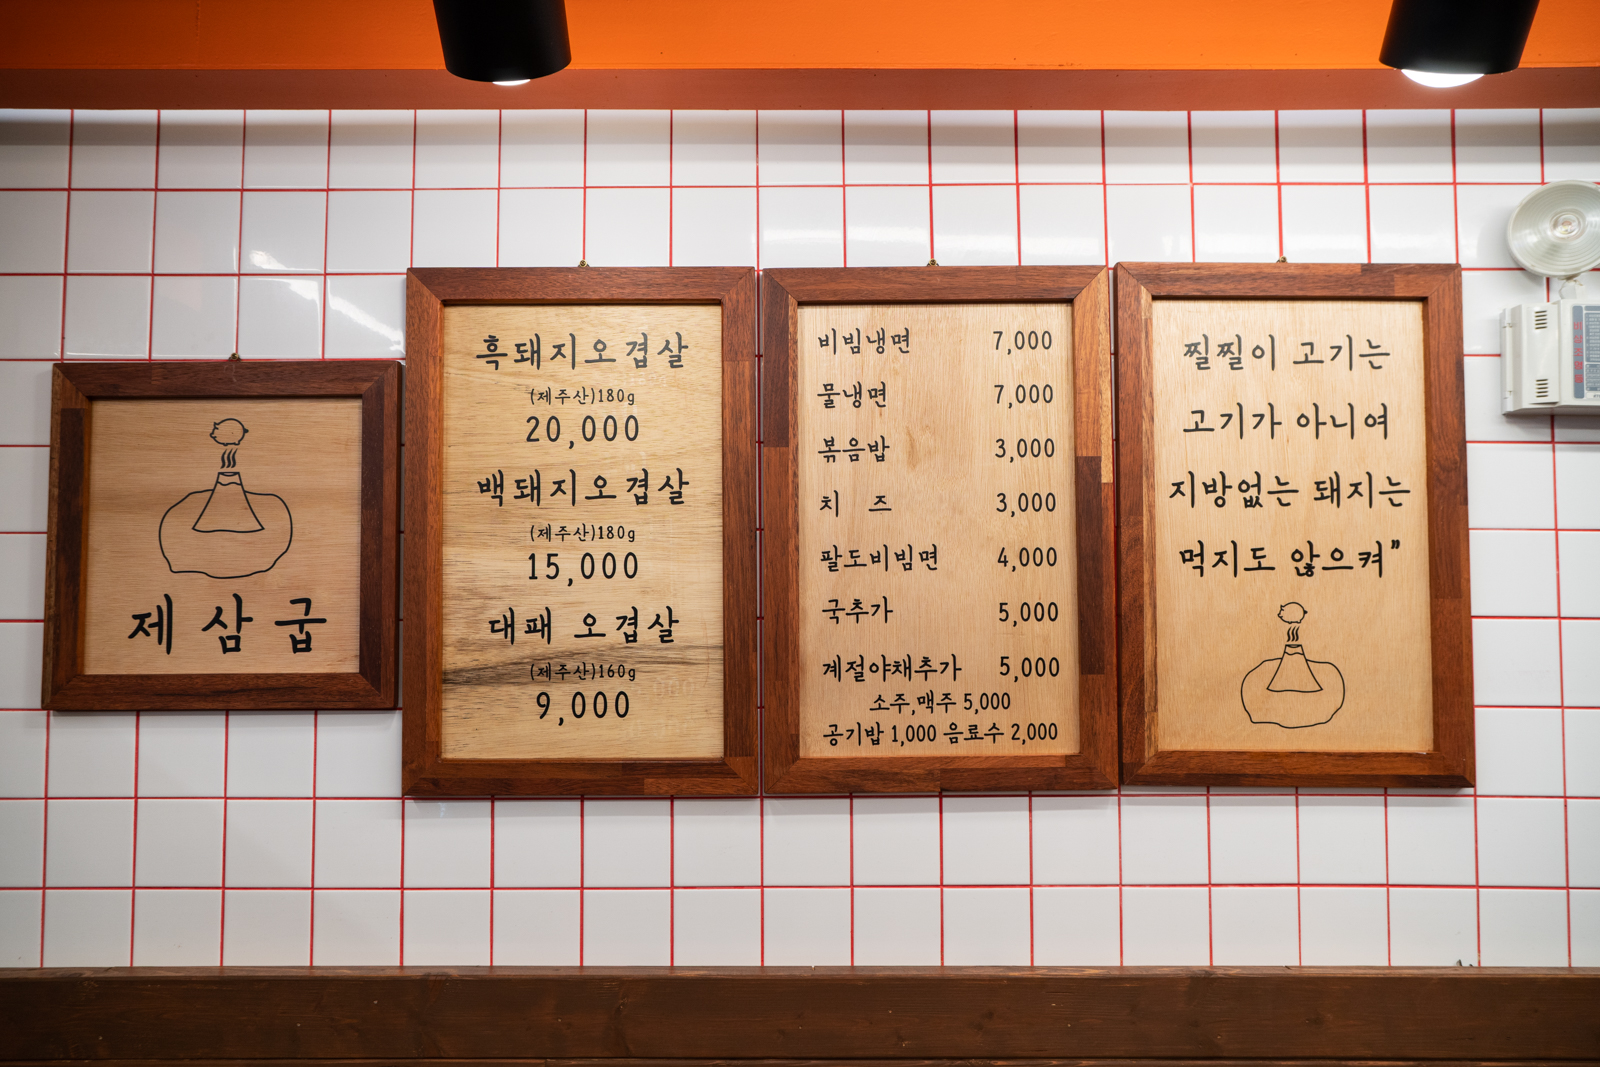 제삼굽
흑돼지오겹살
(제주산)180g
20,000
백돼지오겹살
(제주산)180g
15,000
대패 오겹살
(제주산)160g
9,000
비빔냉면 7,000
물냉면 7,000
볶음밥 3,000
치 즈 3,000
팔도비빔면 4,000
국추가 5,000
계절야채추가 5,000
소주,맥주 5,000
공기밥 1,000 음료수 2,000
찔찔이 고기는
고기가 아니여
지방없는 돼지는
먹지도 않으켜”